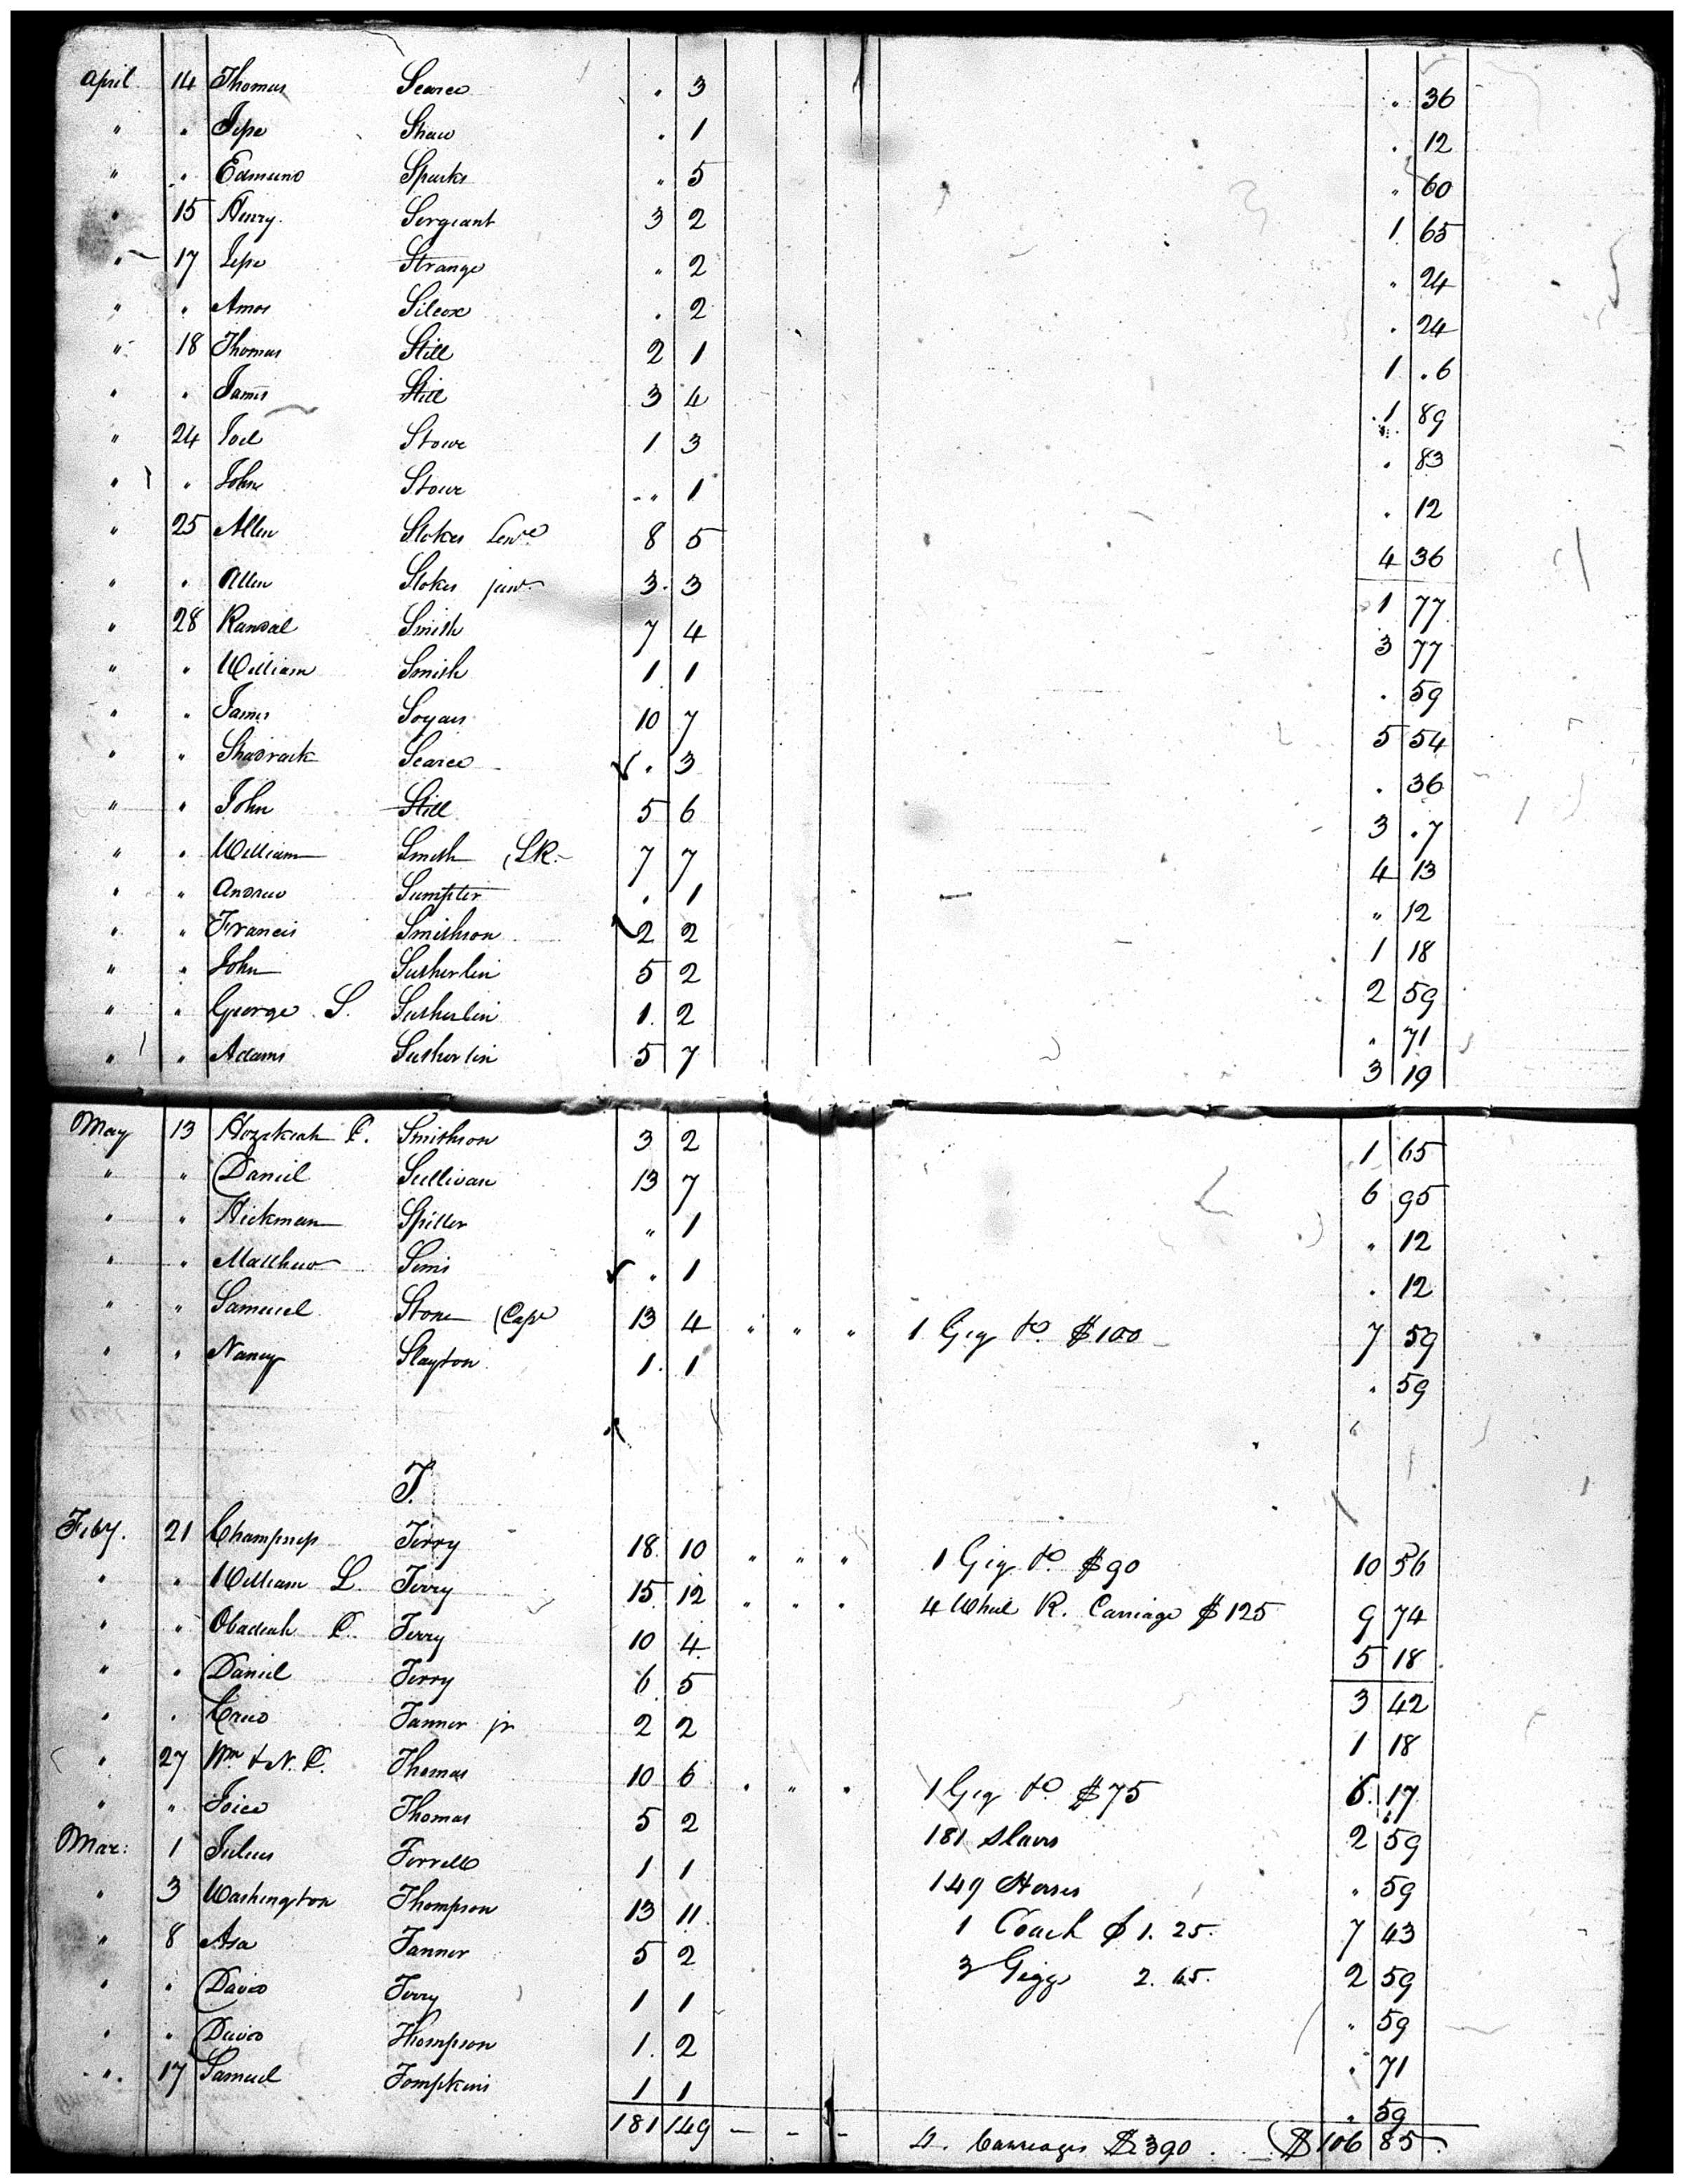 April 14 Thomas Scearce . 3 . 36
" " Jesse Shaw . 1 . 12
" " Edmund Sparks " 5 " 60
" 15 Henry Sergeant 3 2 1 65
" 17 Jesse Strange " 2 " 24
" " Amos Silcox . 2 . 24
" 18 Thomas Still 2 1 1 .6
" " James Still 3 4 1 89
" 24 Joel Stowe 1 3 . 83
" " John Stowe " 1 . 12
" 25 Allen Stokes Senr 8 5 4 36
" " Allen Stokes junr 3 3 1 77
" 28 Randal Smith 7 4 3 77
" " William Smith 1 1 . 59
" " James Soyars 10 7 5 54
" " Shadrack Scearce . 3 . 36
" " John Still 5 6 3 .7
" " William Smith (SR. 7 7 4 13
" " Andrew Sumpter . 1 " 12
" " Francis Smithson 2 2 1 18
" " John Sutherlin 5 2 2 59
" " George S. Sutherlin 1. 2 . 71
" " Adams Sutherlin 5 7 3 19
May 13 Hezekiah P. Smithson 3 2 1 65
" " Daniel Sullivan 13 7 6 95
" " Hickman Spiller " 1 " 12
" " Matthew Sims . 1 . 12
" " Samuel Stone (Capt 13 4 " " " 1 Gig to $100 7 59
" " Nancy Slayton 1. 1 . 59
T.
Feby. 21 Champness Terry 18 10 " " " 1 Gig to $90 10 56
" " William L. Terry 15 12 " " " 4 Wheel R. Carriage $125 9 74
" " Obadiah P. Terry 10 4 5 18
" " Daniel Terry 6 5 3 42
" " Creed Tanner jr 2 2 1 18
" 27 Wm & N. C. Thomas 10 6 " " " 1 Gig to $75 6 17
" " Joice Thomas 5 2 181 Slaves 2 59
Mar: 1 Julius Terrell 1 1 149 Horses " 59
" 3 Washington Thompson 13 11 1 Coach $1.25. 7 43
" 8 Asa Tanner 5 2 3 Gigs 2.65. 2 59
" " David Terry 1 1 " 59
" " David Thompson 1. 2 . 71
" 17 Samuel Tompkins 1 1 . 59
181 149 - - - 4. Carriages $390. $106 85